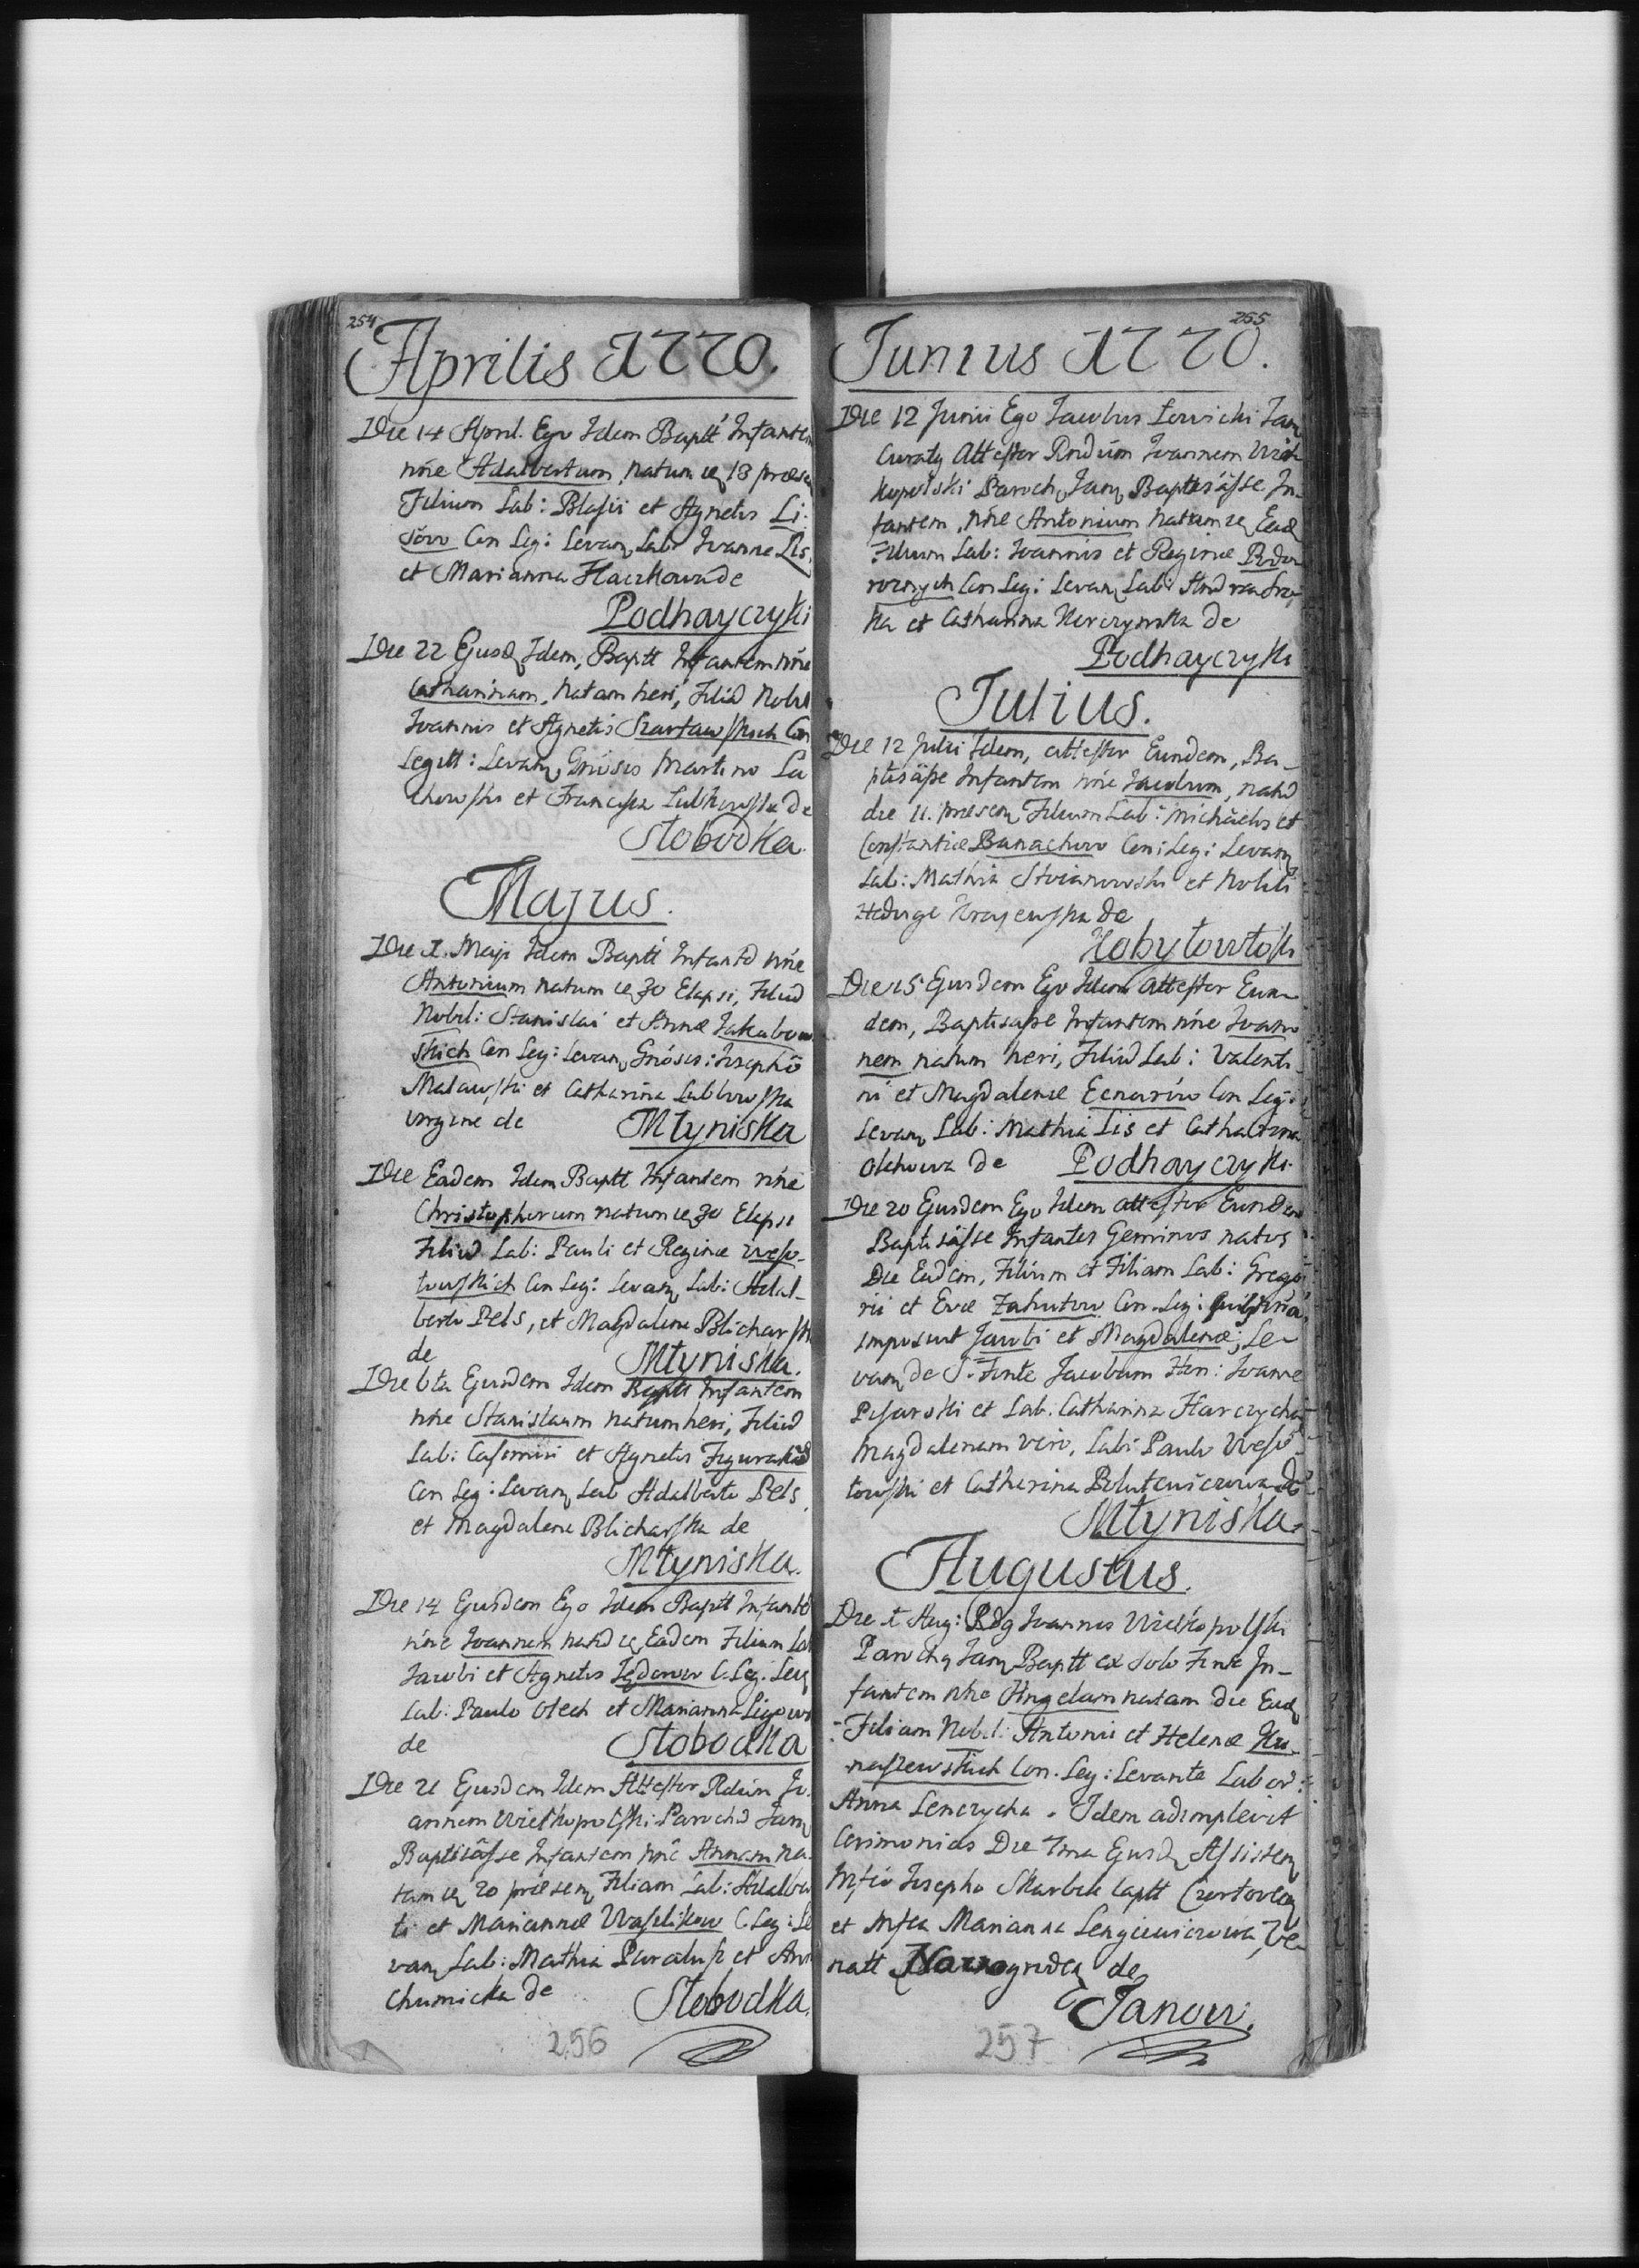 254
Aprilis 1770.
Die 14 April. Ego Idem Baptt Infantem
nñe Adalbertum, natum ie 13 praesen
Filium Lab: Blasii et Agnetis Li-
sów Con Leg: Levan Lab: Ioanne Lis,
et Marianna Haczkowa de
Podhayczyki
Die 22 Ejusd Idem, Baptt Infantem nñe
Catharinam, natam heri, Filiã Nobil
Ioannis et Agnetis Szartawskich Con
Legitt: Levan, Gñosis Martino La
chowski et Francisca Lubkowska de
Słobodka.
Majus.
Die 1. Maji Idem Baptt Infantẽ nñe
Antonium natum ie 30 Elapsi, Filiũ
Nobil: Stanislai et Annæ Iakubow
skich Con Leg: Levan, Gñosis: Iosephõ
Malawski et Catharina Lubkowska
virgine de Młyniska
Die Eadem Idem Baptt Infantem nñe
Christopherum natum ie 30 Elapsi
Filiũ Lab: Pauli et Reginæ Weso-
łowskich Con Leg: Levan Lab: Adal-
berto Pels, et Magdalena Blicharska
de Młyniska.
Die 6ta Ejusdem Idem Baptt Infantem
nñe Stanislaum natum heri, Filiũ
Lab: Casimiri et Agnetis Figurskich
Con Leg: Levan Lab Adalberto Pels,
et Magdalena Blicharska de
Młyniska.
Die 14 Ejusdem Ego Idem Baptt Infantẽ
nñe Ioannem natũ ie Eadem Filium Lab
Iacobi et Agnetis C. Leg. Lev
Lab: Paulo Olech et Marianna Ligowa
de Słobodka
Die 21 Ejusdem Idem Attestor Rdum Io-
annem Wielkopolski Parochũ Jan
Baptisâsse Infantem nñe Annam na-
tam ie 20 præsen, Filiam Lab: Adalber
ti et Mariannæ Wasylikow C. Leg: Le
van, Lab: Mathia et Ann
Chumicka de Słobodka.
256
255
Junius 1770.
Die 12 Junii Ego Iacobus Łowicki Jan
Curatq Attestor Rndum Ioannem Wiel
kopolski Paroch, Jan, Baptisâsse In-
fantem, nñe Antonium natum ie Ead
Filium Lab: Ioannis et Reginæ Podo-
roznych Con Leg: Levan, Lab: Andrea
ka et Catharina de
Podhayczyki
Julius.
Die 12 Julii Idem, attestor Eundem, Ba-
ptisâsse Infantem nñe Iacobum, natũ
die 11. præsen, Filium Lab: Michaelis et
Constantiæ Banachow Con: Leg: Levan,
Lab: Mathia Stoianowski et Nobili
Hedvige Krajewska de
Kobyłowłoki
Die 15 Ejusdem Ego Idem attestor Eun-
dem, Baptisâsse Infantem nñe Ioan-
nem natum heri, Filiũ Lab: Valenti-
ni et Magdalenæ Con Leg:
Levan, Lab: Mathia Lis et Catharina
Olchowa de Podhayczyki.
Die 20 Ejusdem Ego Idem attestor Eundem
Baptisâsse Infantes Geminos natos
Die Eadem, Filium et Filiam Lab: Grego-
rii et Evæ Zahutow Con. Leg: nña,
imposuit Jacobi et Magdalenæ; Le-
van, de S. Fonte Jacobum Hon: Ioanne
Pisarski et Lab. Catharina Harczycha
Magdalenam vero, Lab: Paulo Weso-
łowski et Catharina de
Młyniska.
Augustus.
Die 1 Aug: Rdg Ioannes Wielkopolski
Parochq Jan, Baptt ex solo Fonte In-
fantem nñe Angelam natam die Ead
Filiam Nobil: Antonii et Helenæ Ku-
naszewskich Con. Leg: Levante Labor:
Anna Lenczycha. Idem adimplevit
Cerimonias Die 7ma Ejusd, Assisten,
Mfco Iosepho Skarbek Captt
et Mfca Marianna Lengiewiczowa, Ve-
natt de
Janow.
257